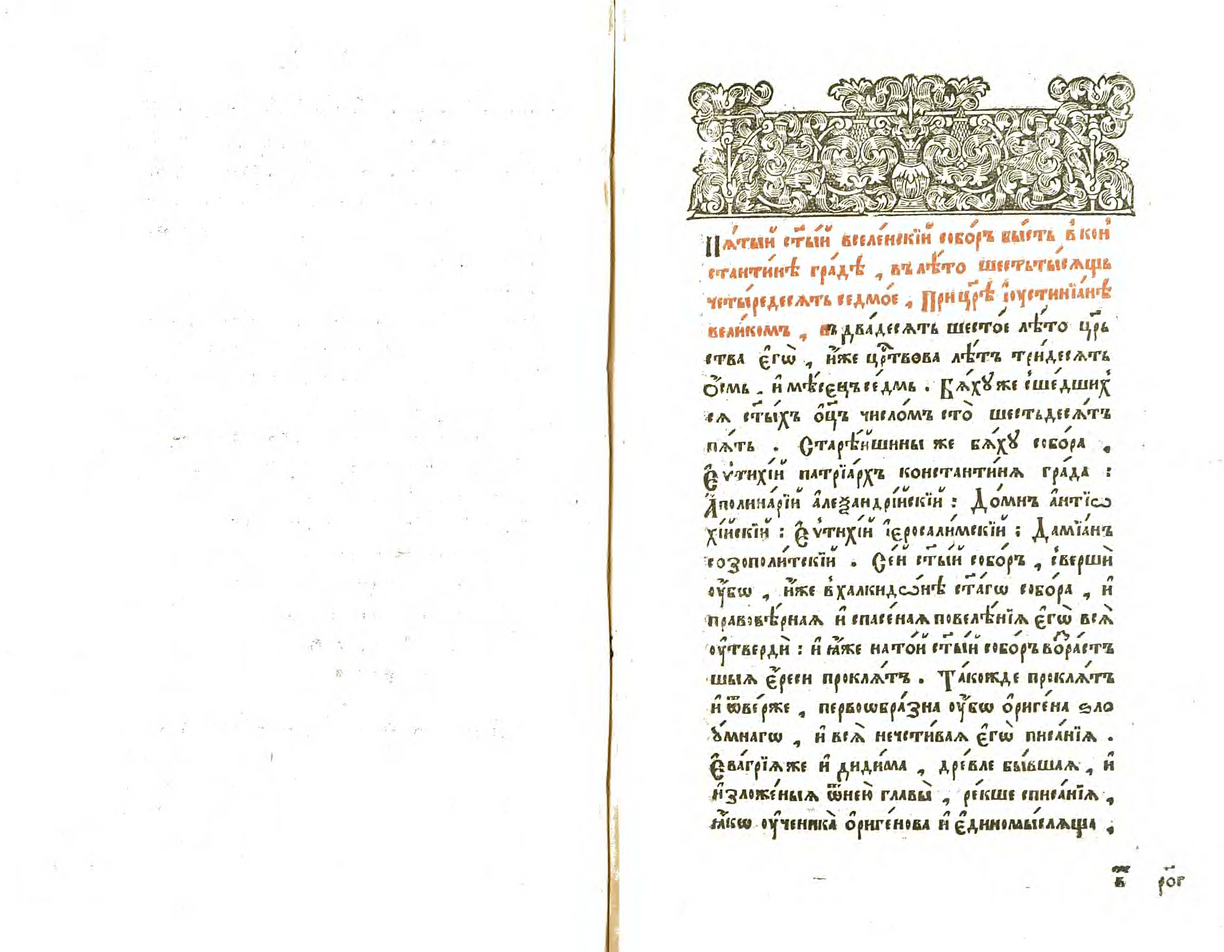 Пѧ́тый ст҃ый вселе́нскїй собо́ръ бы́сть в кон
стантинѣ̀ гра́дѣ , въ лѣ́то шестьты́сѧщь
четы́редесѧть седмо́е , При цр҃ѣ і҆оустинїа́нѣ
вели́комъ , въ два́десѧть шесто́е лѣ́то црⷭ҇
ства є҆гѡ̀ , и҆́же црⷭ҇твова лѣ́тъ три́десѧть
ѻ҆́смь , и҆ мѣ́сєцъ се́дмь . Бѧ́хꙋ же сше́дших
сѧ ст҃ы́хъ ѻ҆ц҃ъ число́мъ сто̀ шестьдесѧ́тъ
пѧ́ть . Старѣ́йшины же бѧ́хꙋ собо́ра ,
Є҆ѵти́хїй патрїа́рхъ константи́нѧ гра́да :
А҆полина́рїй а҆леѯандрі́йскїй : До́мнъ а҆нтїѡ
хі́йскїй : Є҆ѵти́хїй і҆єросали́мскїй : Дамїа́нъ
созополи́тскїй . Се́й ст҃ы́й собо́ръ , свершѝ
ѹ҆́бѡ , и҆́же в халкидѡ́нѣ ст҃а́гѡ собо́ра , и҆
правовѣ́рнаѧ и҆ спасе́наѧ повелѣ́нїѧ є҆гѡ̀ всѧ̀
ѹ҆твердѝ : и҆ ꙗ҆́же на то́й ст҃ы́й собо́ръ во́раст
шыѧ є҆́реси проклѧ́тъ . Та́кожде проклѧ́тъ
и҆ ѿве́рже , первоѡбра́зна ѹ҆́бѡ ѻ҆риге́на ѕло
ꙋ́мнагѡ , и҆ всѧ̀ нечести́ваѧ є҆гѡ̀ писа́нїѧ .
Є҆ва́грїѧ же и҆ ди́дима , дре́вле бы́вшаѧ , и҆
и҆зложе́ныѧ ѿ нею̀ главы̀ , ре́кше списа́нїѧ ,
ꙗ҆́кѡ ѹ҆ченика̀ ѻ҆риге́нова и҆ є҆диномы́слѧща ,
рог